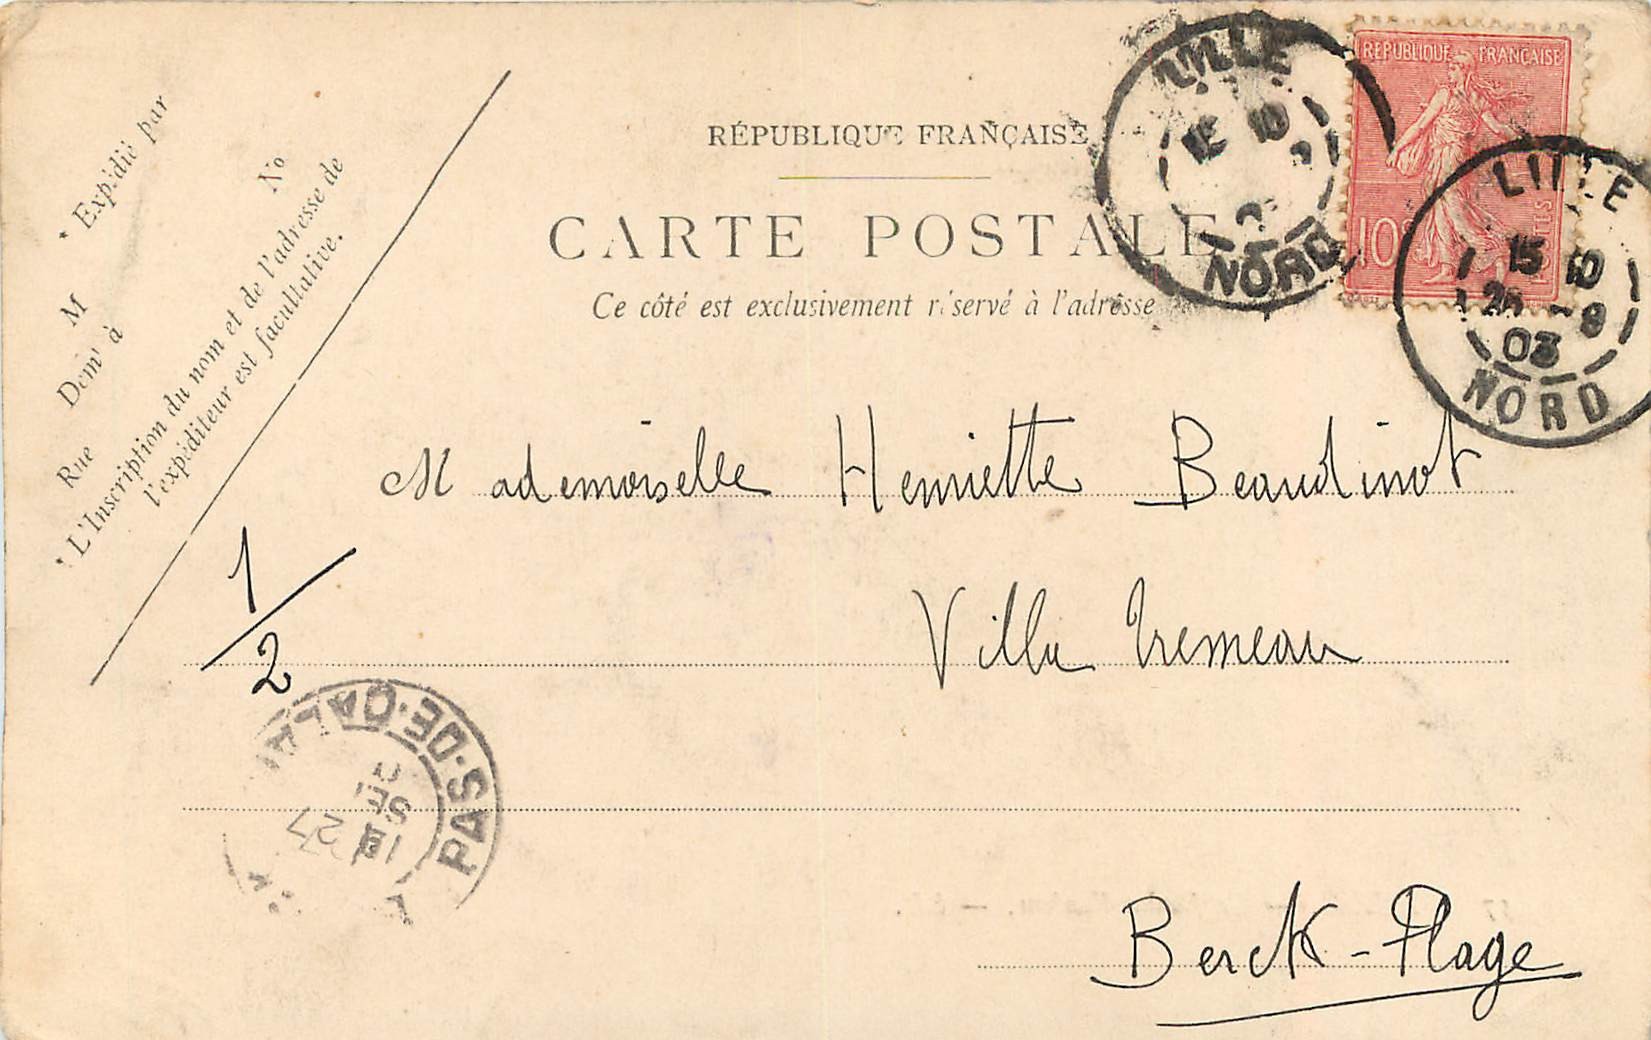 RÉPUBLIQUE FRANÇAISE
CARTE POSTALE
Ce côté est exclusivement réservé à l'adresse
* Expédié par
M
Demt à
Rue
No
* L'Inscription du nom et de l'adresse de
l'expéditeur est facultative.
REPUBLIQUE FRANÇAISE
10c
LILLE
10
NORD
LILLE
15 10
26 -9
03
NORD
Mademoiselle Henriette Beaudinot
Villa Tremeau
1/2
Berck-Plage
PAS-DE-CALAIS
27
SEPT